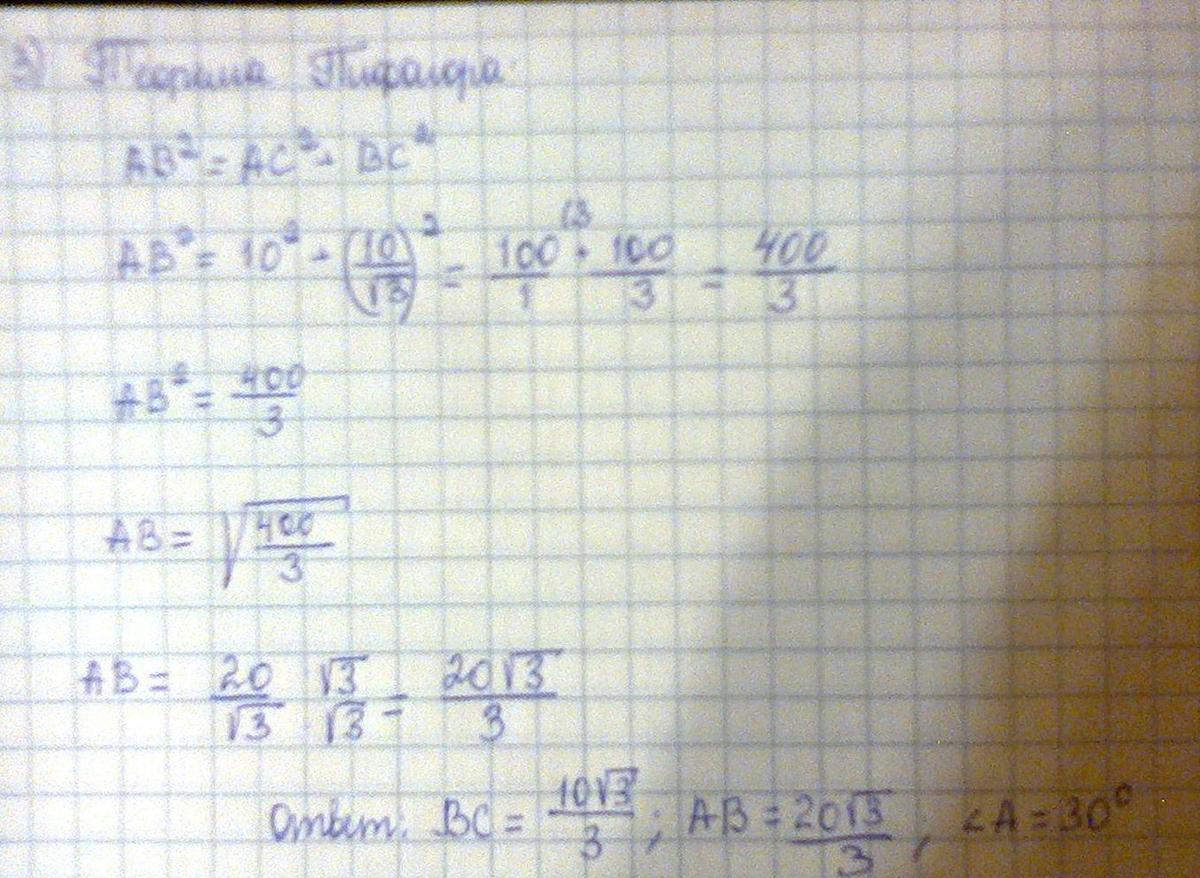 3) Теорема Пифагора.
AB² = AC² + BC²
AB² = 10² + (10/√3)² = 100/1 (3 + 100/3 = 400/3
AB² = 400/3
AB = √(400/3)
AB = 20/√3 · √3/√3 = 20√3/3
Ответ: BC = 10√3/3 ; AB = 20√3/3 ; ∠A = 30°